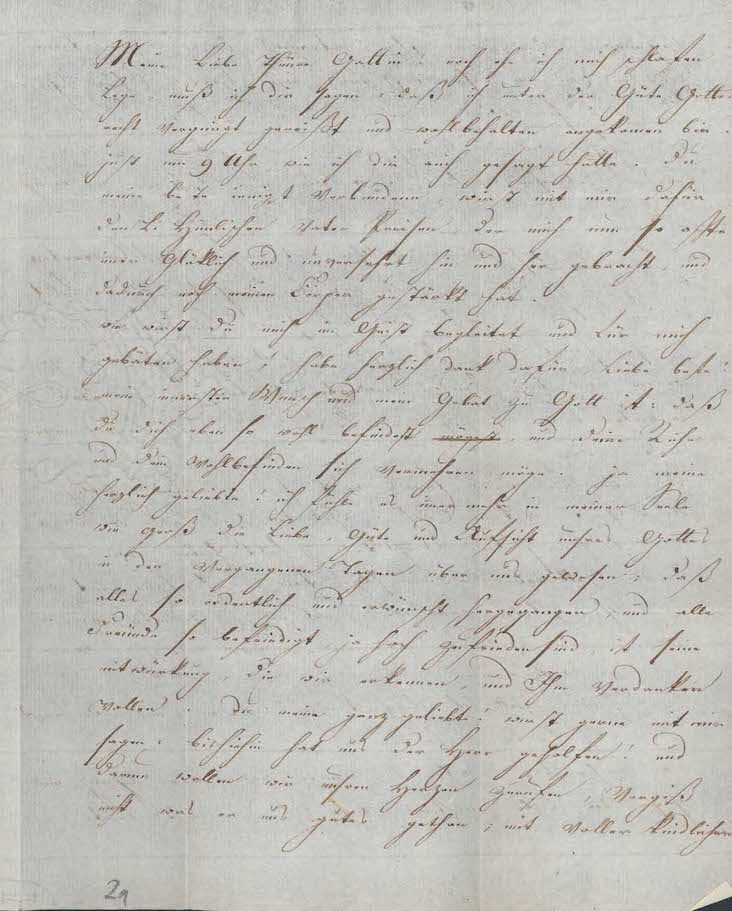 Meine Liebe Theure Gattin! noch ehe ich mich schlafen
Lege, muß ich dir sagen, daß ich unter der Güte Gottes
recht vergnügt gereißt und wohlbehalten angekomen bin.
just um 9 Uhr wie ich dir auch gesagt hatte. Du
meine beste innigst Verbundene, wirst mit mir dafür
den L. Himlischen Vater Preisen, der mich nun so offte
imer Glüklich und unversehrt hin und her gebracht, und
dadurch noch meinen Cörper gestärkt hat.
wie wirst Du mich im Geist begleitet und für mich
gebäten haben! habe herzlich dank dafür Liebe beste!
mein innerster Wunsch und mein Gebät zu Gott ist: daß
du dich eben so wohl befindest, und deine Ruhe
und dein Wohlbefinden sich vermehren möge. ja meine
herzlich geliebte! ich fühle es imer mehr in meiner Seele
wie groß die Liebe, Güte und Aufsicht unsres Gottes
in den Vergangenen Tagen über uns gewesen, daß
alles so ordentlich und erwünscht hergegangen, und alle
Freunde so befriedigt, ja hoch zufrieden sind ist seine
mitwürkung, die wir erkennen, und Ihm Verdanken
wollen. Du meine ganz geliebte! wirst gerne mit mir
sagen: bis hiehin hat uns der Herr geholfen! und
darum wollen wir unsren Herzen zurufen, Vergiß
nicht was er uns gutes gethan; mit voller kindlicher
2a